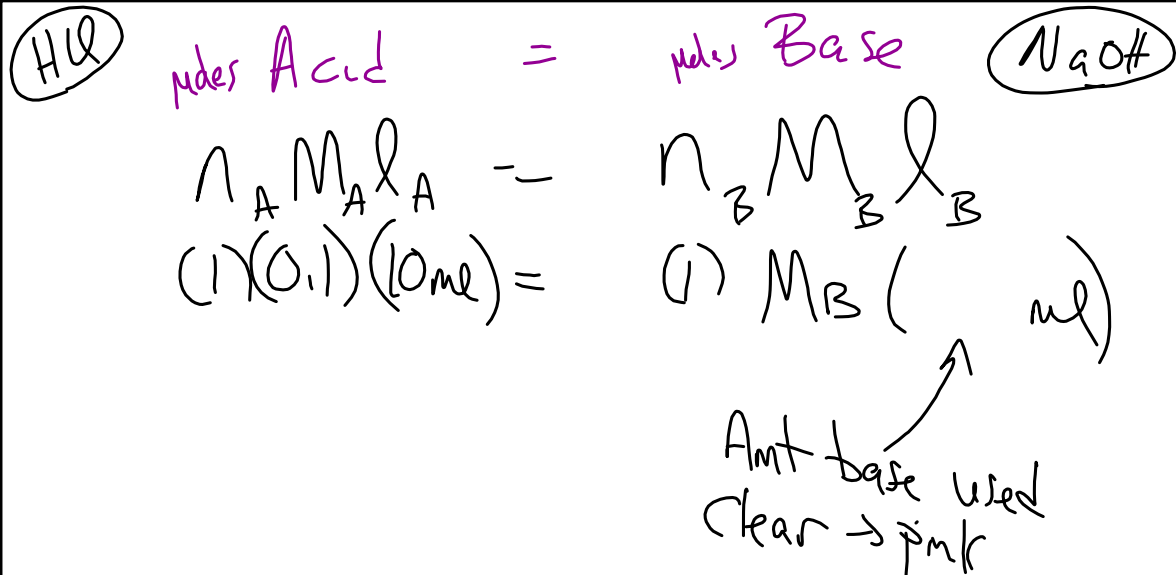 HCl moles Acid = moles Base NaOH
n_A M_A l_A = n_B M_B l_B
(1)(0.1)(10ml) = (1) M_B ( ml)
Amt base used
Clear → pink